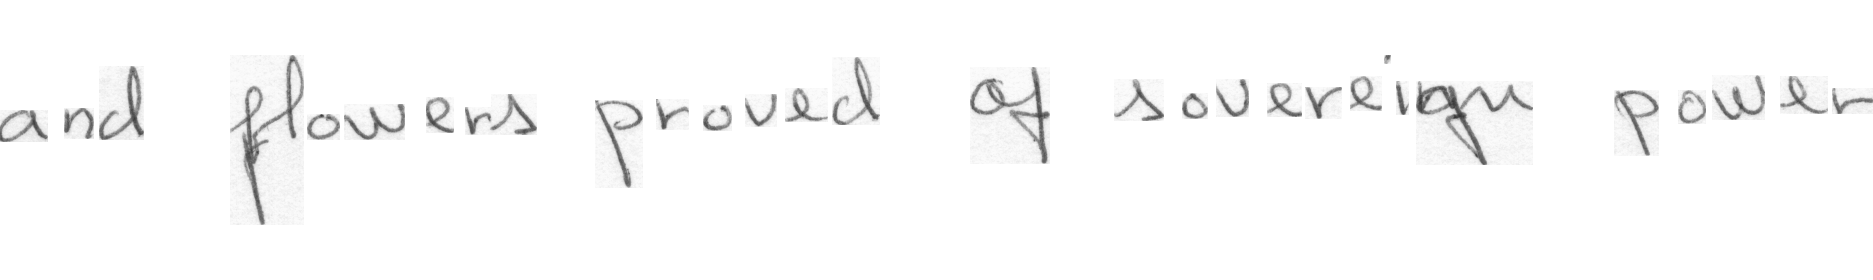 and flowers proved of sovereign power